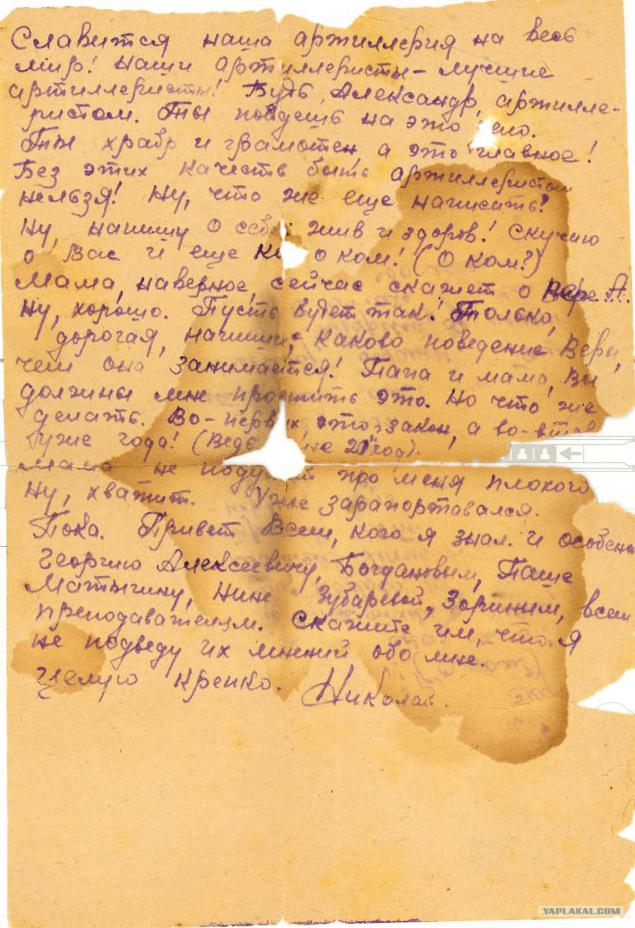 Славится наша артиллерия на весь
мир! Наши артиллеристы - лучшие
артиллеристы! Будь, Александр, артилле-
ристом. Ты пойдешь на это
Ты храбр и грамотен а это главное!
Без этих качеств быть артиллеристом
нельзя! Ну, что же еще написать?
Ну, напишу о себе жив и здоров! Скучаю
о вас и еще о ком! (О ком?)
Мама, наверное сейчас скажет о Вере А.
Ну, хорошо. Пусть будет так! Только,
дорогая, напиши, каково поведение Веры,
чем она занимается! Папа и мама, вы
должны мне простить это. Но что же
делать. Во-первых это закон, а во-вторых
уже года! (Ведь 20 год).
Мама не подумай про меня плохого
Ну, хватит. Уже зарапортовался.
Пока. Привет всем, кого я знал и особенно
Георгию Алексеевичу, Богдановым, Паше
Матыгину, Нине Зубаревой, Зориным, всем
преподавателям. Скажите им, что я
не подведу их мнений обо мне.
Целую крепко. Николай.
YAPLAKAL.COM